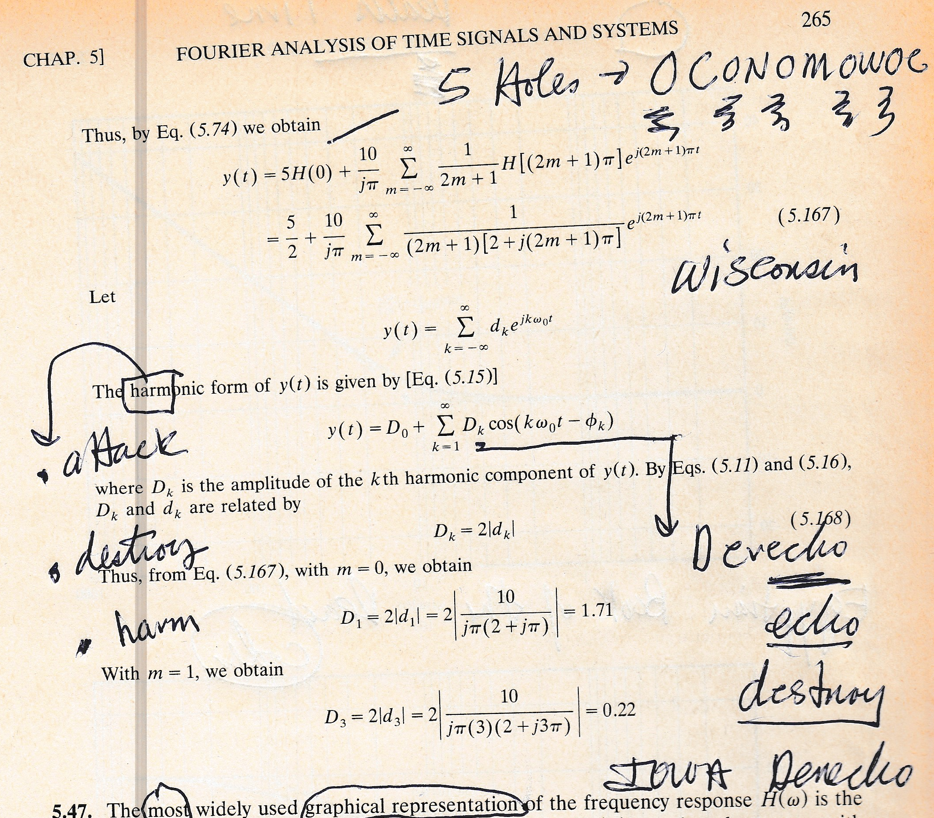 265
CHAP. 5] FOURIER ANALYSIS OF TIME SIGNALS AND SYSTEMS
5 Holes → OCONOMOWOC
Thus, by Eq. (5.74) we obtain
y(t) = 5H(0) + 10/jπ ∑_{m=-∞}^{∞} 1/(2m+1) H[(2m+1)π]e^{j(2m+1)πt}
= 5/2 + 10/jπ ∑_{m=-∞}^{∞} 1/((2m+1)[2+j(2m+1)π]) e^{j(2m+1)πt} (5.167)
Wisconsin
Let
y(t) = ∑_{k=-∞}^{∞} d_k e^{jkω₀t}
The harmonic form of y(t) is given by [Eq. (5.15)]
y(t) = D₀ + ∑_{k=1}^{∞} D_k cos(kω₀t − ϕ_k)
• attack
where D_k is the amplitude of the kth harmonic component of y(t). By Eqs. (5.11) and (5.16),
D_k and d_k are related by
D_k = 2|d_k| (5.168)
Derecho
• destroy
Thus, from Eq. (5.167), with m = 0, we obtain
D₁ = 2|d₁| = 2|10/(jπ(2+jπ))| = 1.71
echo
• harm
With m = 1, we obtain
destroy
D₃ = 2|d₃| = 2|10/(jπ(3)(2+j3π))| = 0.22
IOWA Derecho
5.47. The most widely used graphical representation of the frequency response H(ω) is the